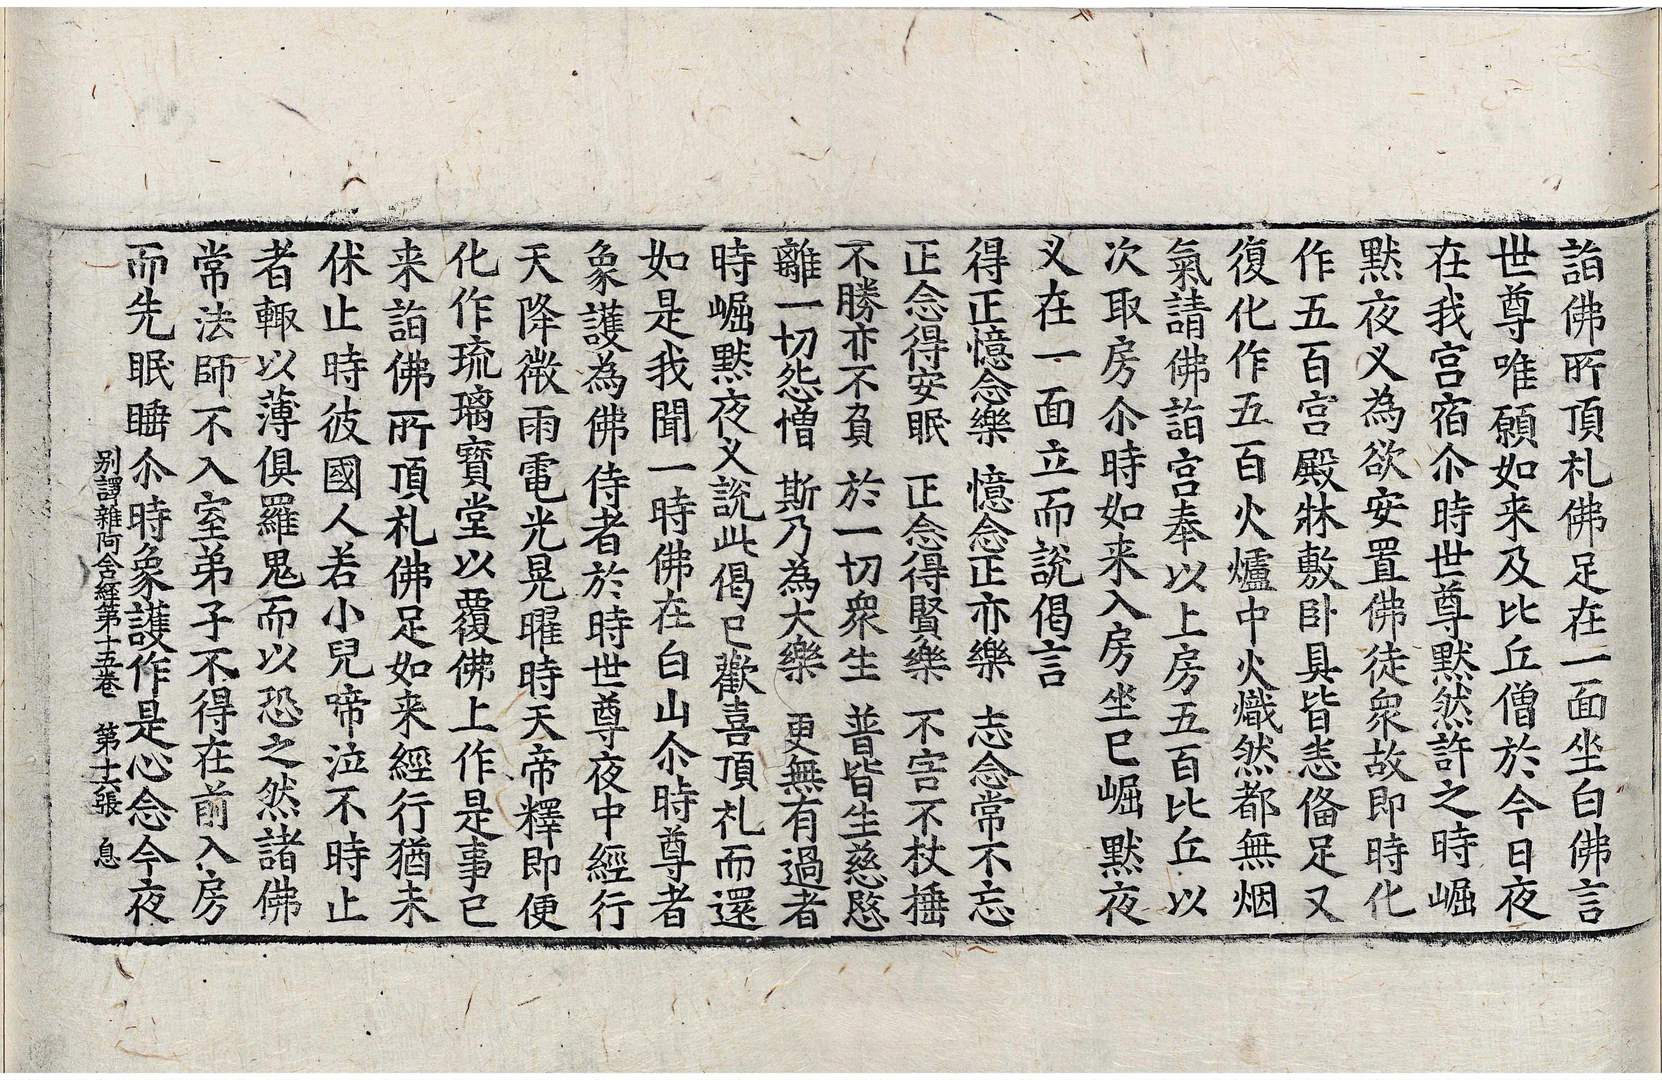 詣佛所頂札佛足在一面坐白佛言
世尊唯願如来及比丘僧於今日夜
在我宫宿尒時世尊默然許之時崛
默夜义為欲安置佛徒衆故即時化
作五百宫殿牀敷卧具皆悉俻足又
復化作五百火爐中火熾然都無烟
氣請佛詣宫奉以上房五百比丘以
次取房尒時如来入房坐已崛默夜
义在一面立而說偈言
得正憶念樂　憶念正亦樂　志念常不忘
正念得安眠　正念得賢樂　不害不杖捶
不勝亦不負　於一切衆生　普皆生慈愍
離一切怨憎　斯乃為大樂　更無有過者
時崛默夜义說此偈已歡喜頂札而還
如是我聞一時佛在白山尒時尊者
象護為佛侍者於時世尊夜中經行
天降微雨電光晃曜時天帝釋即便
化作琉璃寶堂以覆佛上作是事已
来詣佛所頂札佛足如来經行猶未
休止時彼國人若小兒啼泣不時止
者輙以薄俱羅鬼而以恐之然諸佛
常法師不入室弟子不得在前入房
而先眠睡尒時象護作是心念今夜
别譯雜阿含經第十五卷　第十六張　息